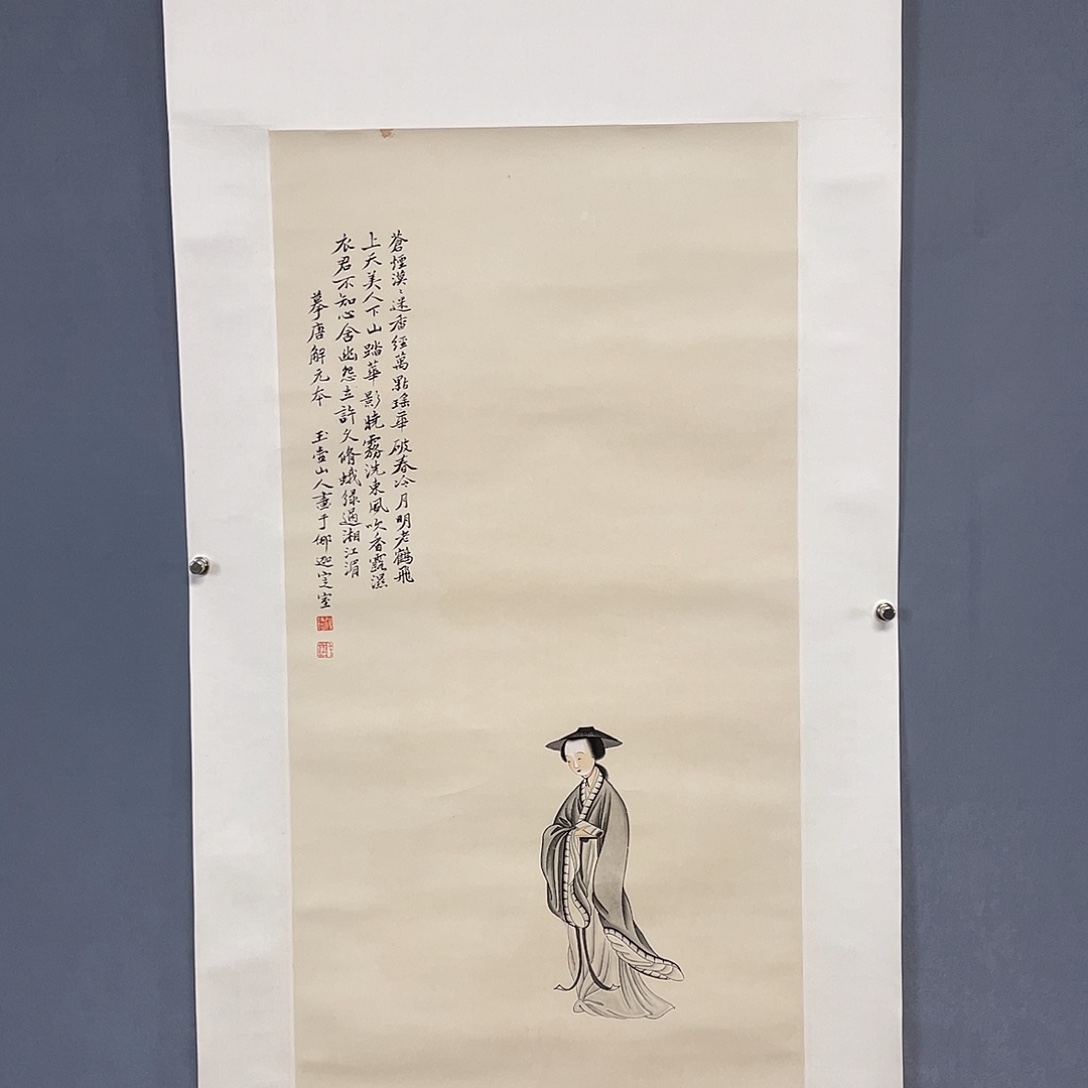 蒼煙漠〻迷香經萬點瑤華破春冷月明老鶴飛
上天美人下山踏華影曉霧洗東風吹香露濕
衣君不知心含幽怨立許久脩蛾綠過湘江湄
摹唐解元本 玉壺山人畫于㑚迦定室